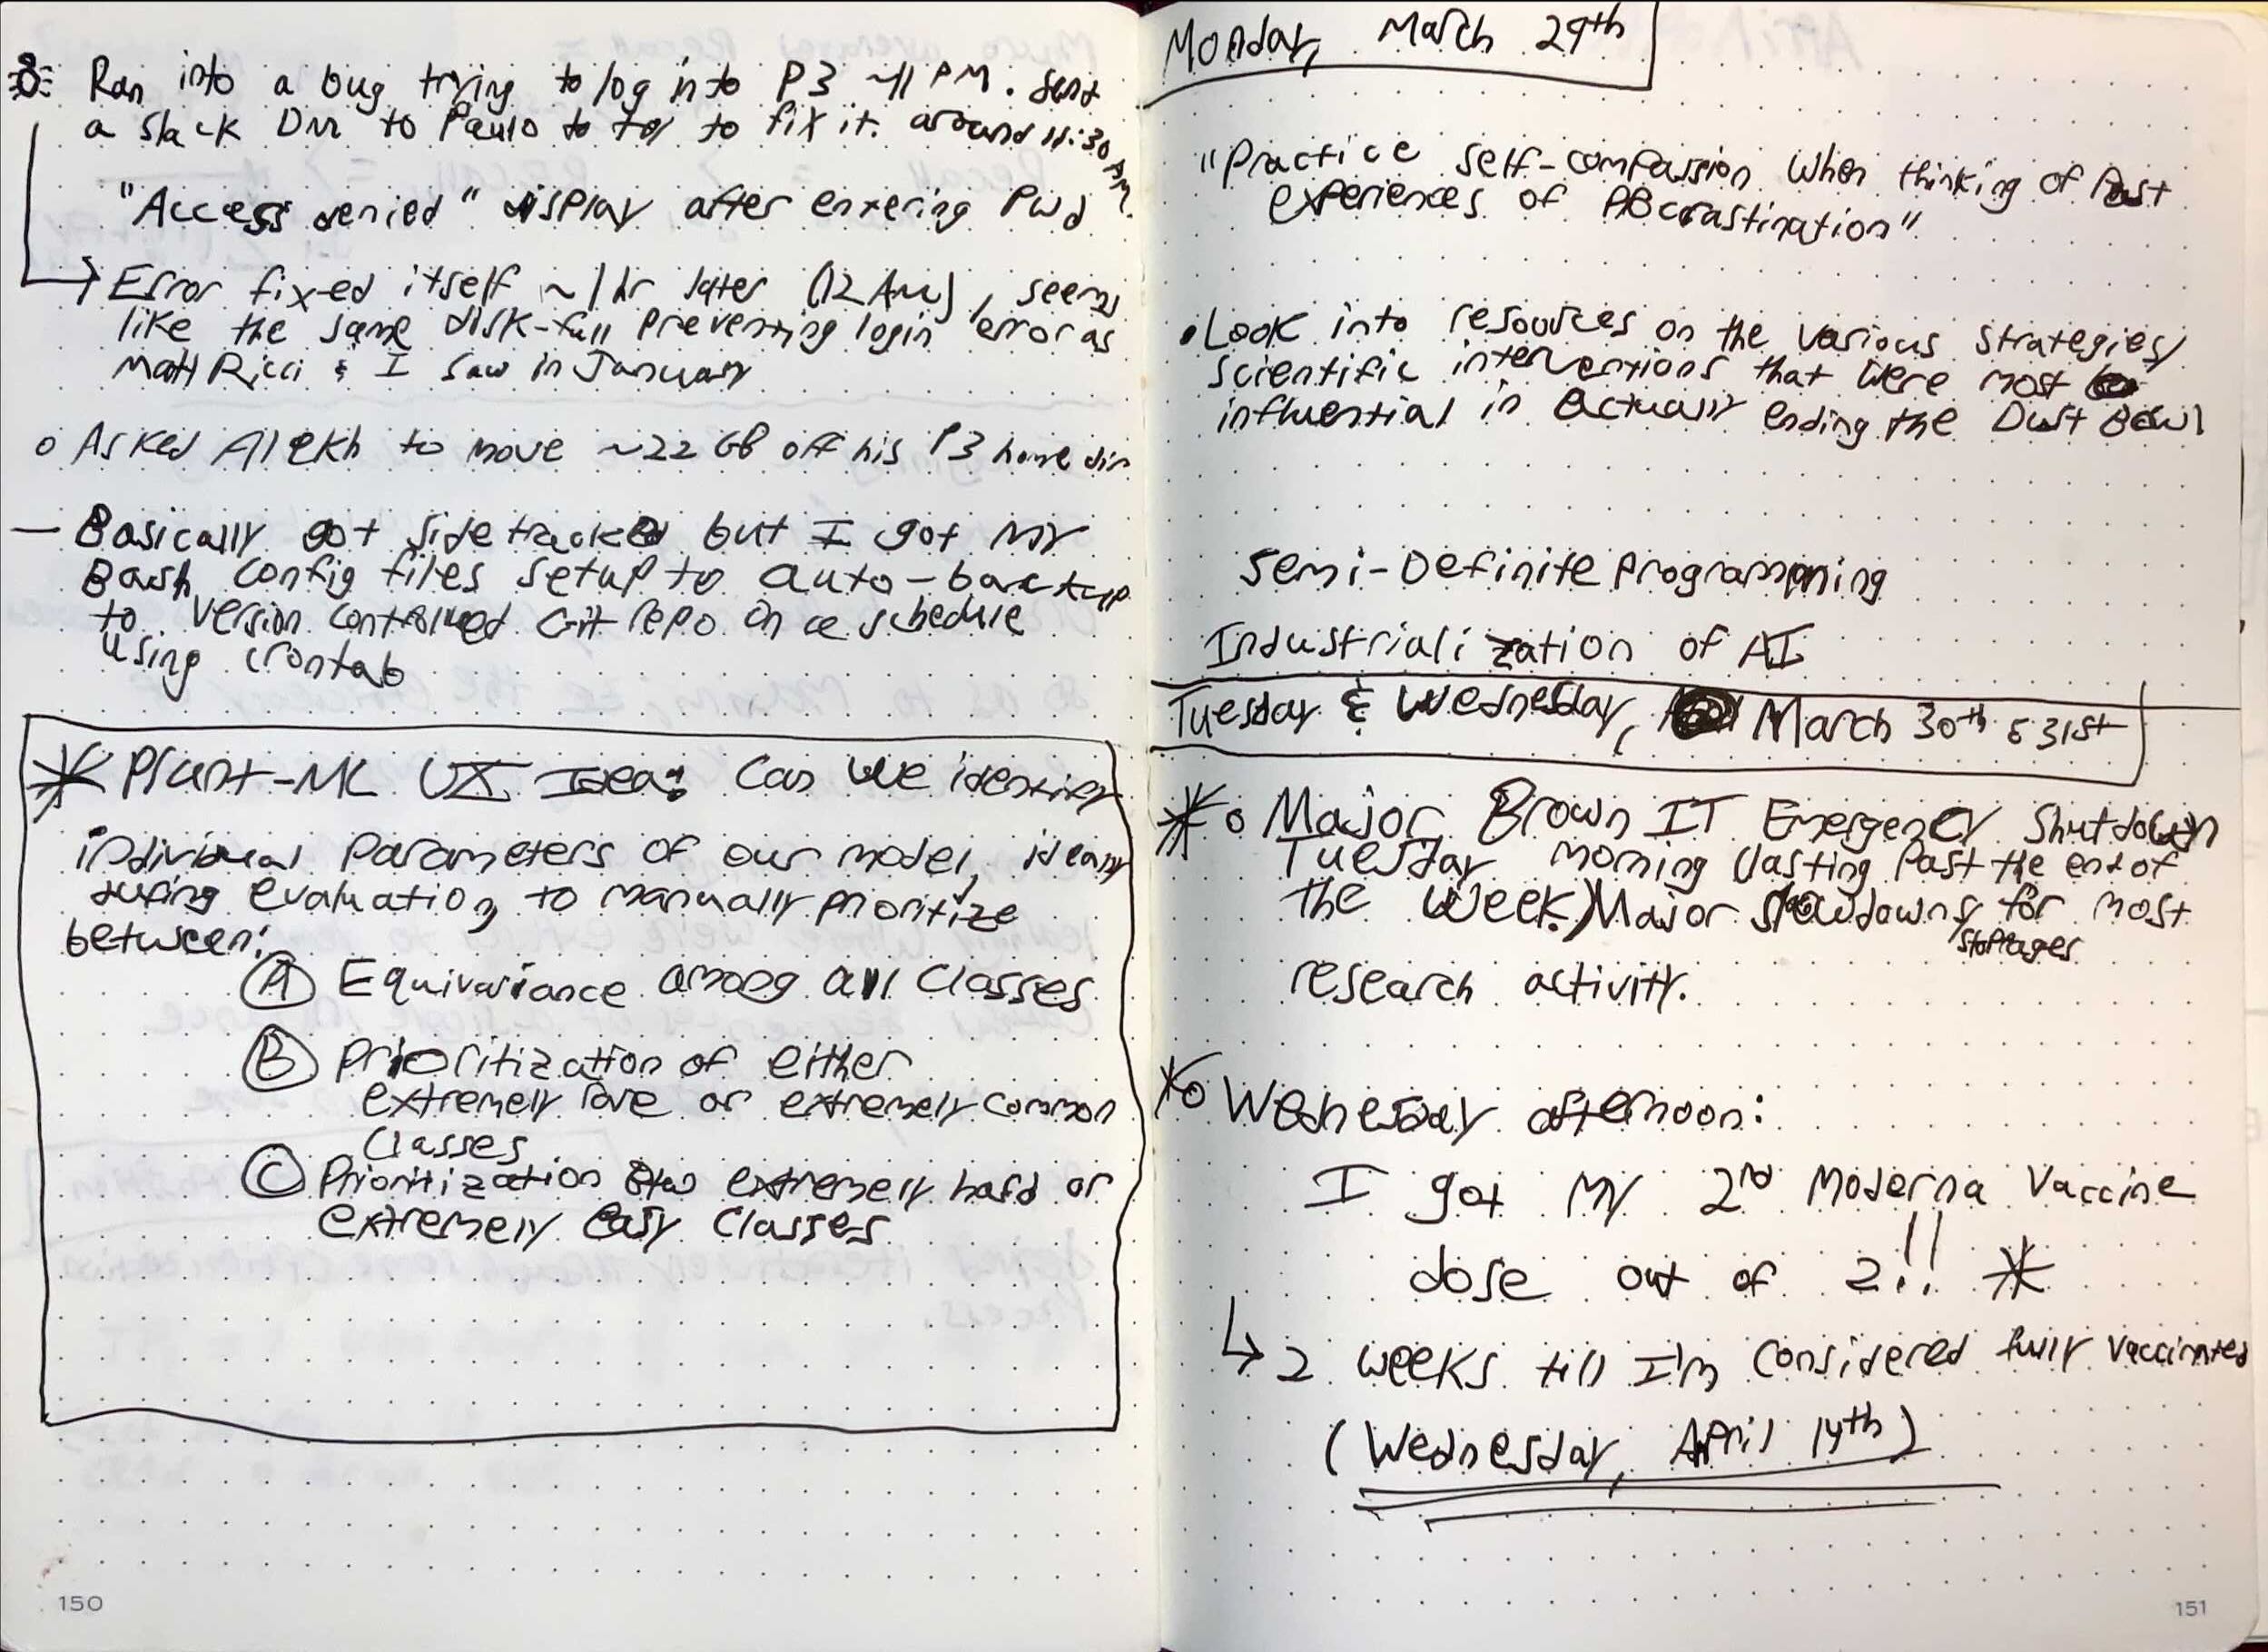 Ran into a bug trying to log into P3 ~11 PM. Sent
a slack DM to Paulo to try to fix it. around 11:30 PM.
"Access denied" display after entering Pwd
Error fixed itself ~1hr later (12 AM), seems
like the same disk-full preventing login error as
Matt Ricci & I saw in January
o Asked Alekh to move ~22 GB off his P3 home dir
— Basically got sidetracked but I got my
Bash config files setup to auto-backup
to version controlled Git repo on a schedule
using crontab
* Plant-ML UX Idea: Can we identify
individual parameters of our model, ideally
during evaluation, to manually prioritize
between:
(A) Equivariance among all classes
(B) Prioritization of either
extremely rare or extremely common
classes
(C) Prioritization btw extremely hard or
extremely easy classes
150
Monday, March 29th
"Practice self-compassion when thinking of Past
experiences of procrastination"
• Look into resources on the various strategies/
scientific interventions that were most
influential in actually ending the Dust Bowl
Semi-Definite Programming
Industrialization of AI
Tuesday & Wednesday, March 30th & 31st
* o Major Brown IT Emergency Shutdown
Tuesday morning (lasting Past the end of
the week.) Major slowdowns/ for most
stoppages
research activity.
* o Wednesday afternoon:
I got my 2nd Moderna Vaccine
dose out of 2!! *
↳ 2 weeks till I'm considered fully vaccinated
(Wednesday, April 14th)
151